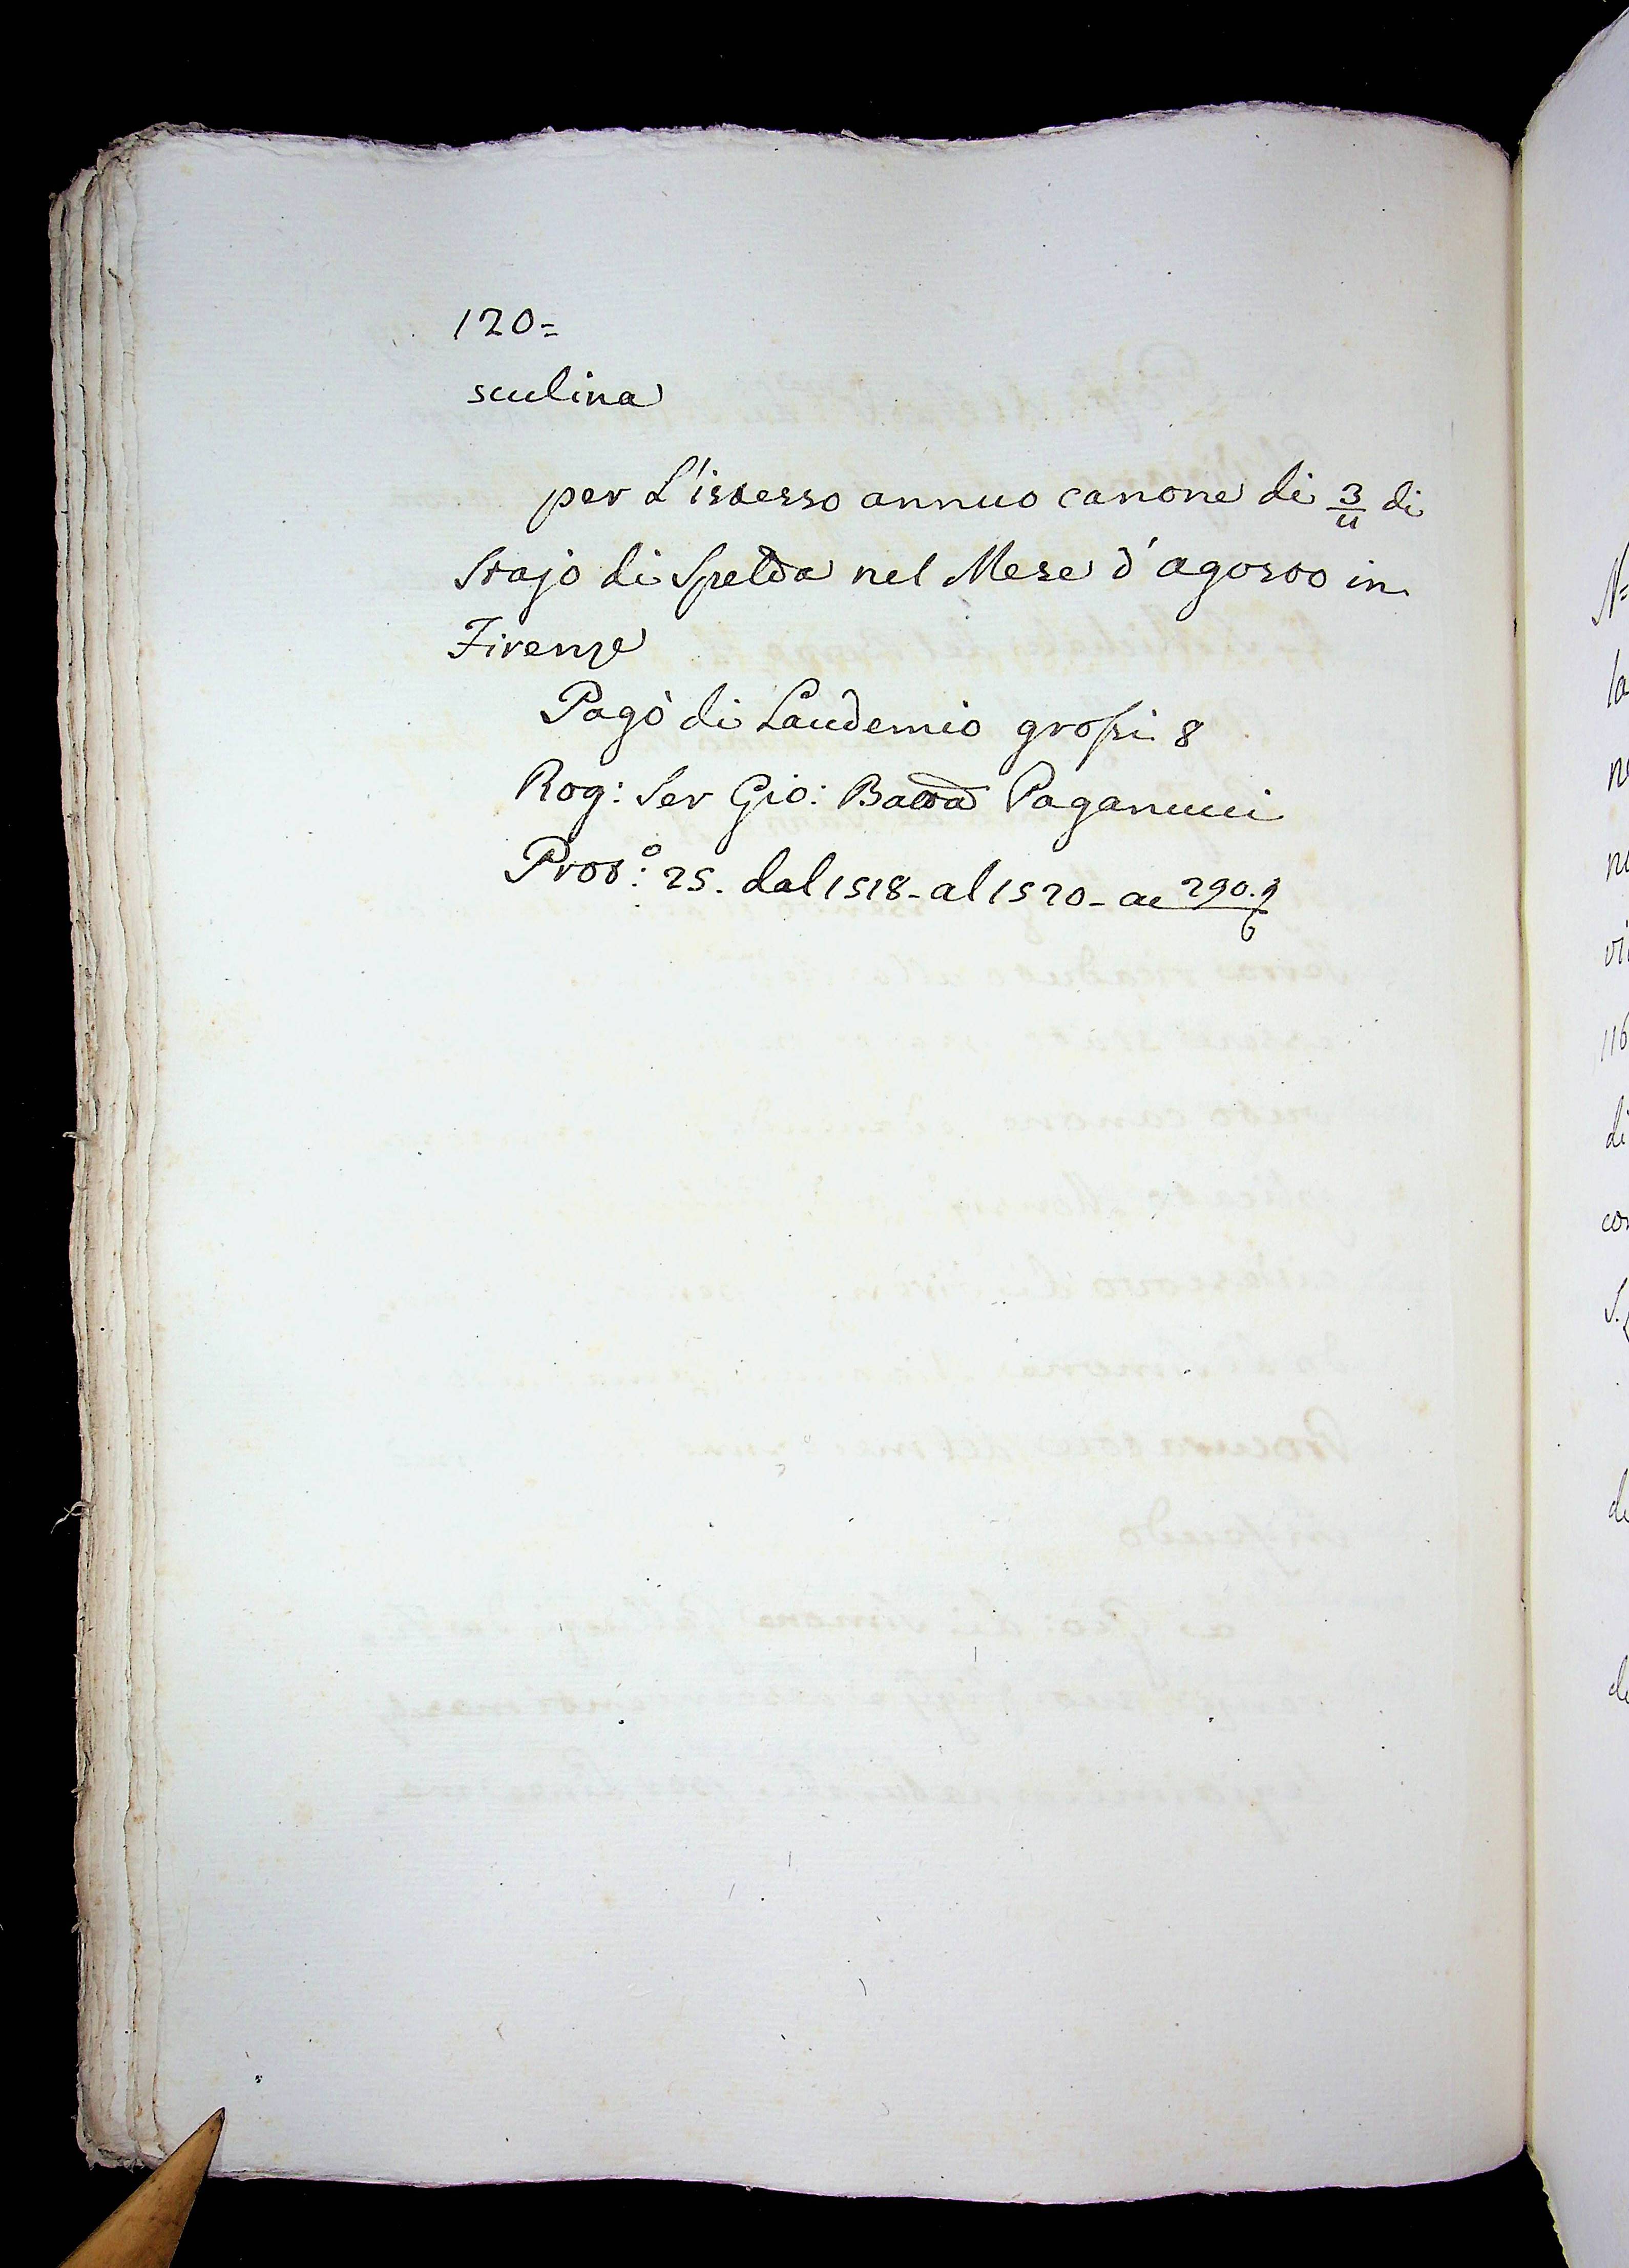 120=
sculina
per L'istesso annuo canone di 3/4 di
Stajo di Spelda nel Mese d'agosto in
Firenze
Pagò di Laudemio grossi 8
Rog: Ser Gio: Batta Paganucci
Prot:º 25. dal 1518- al 1520- ac 290.